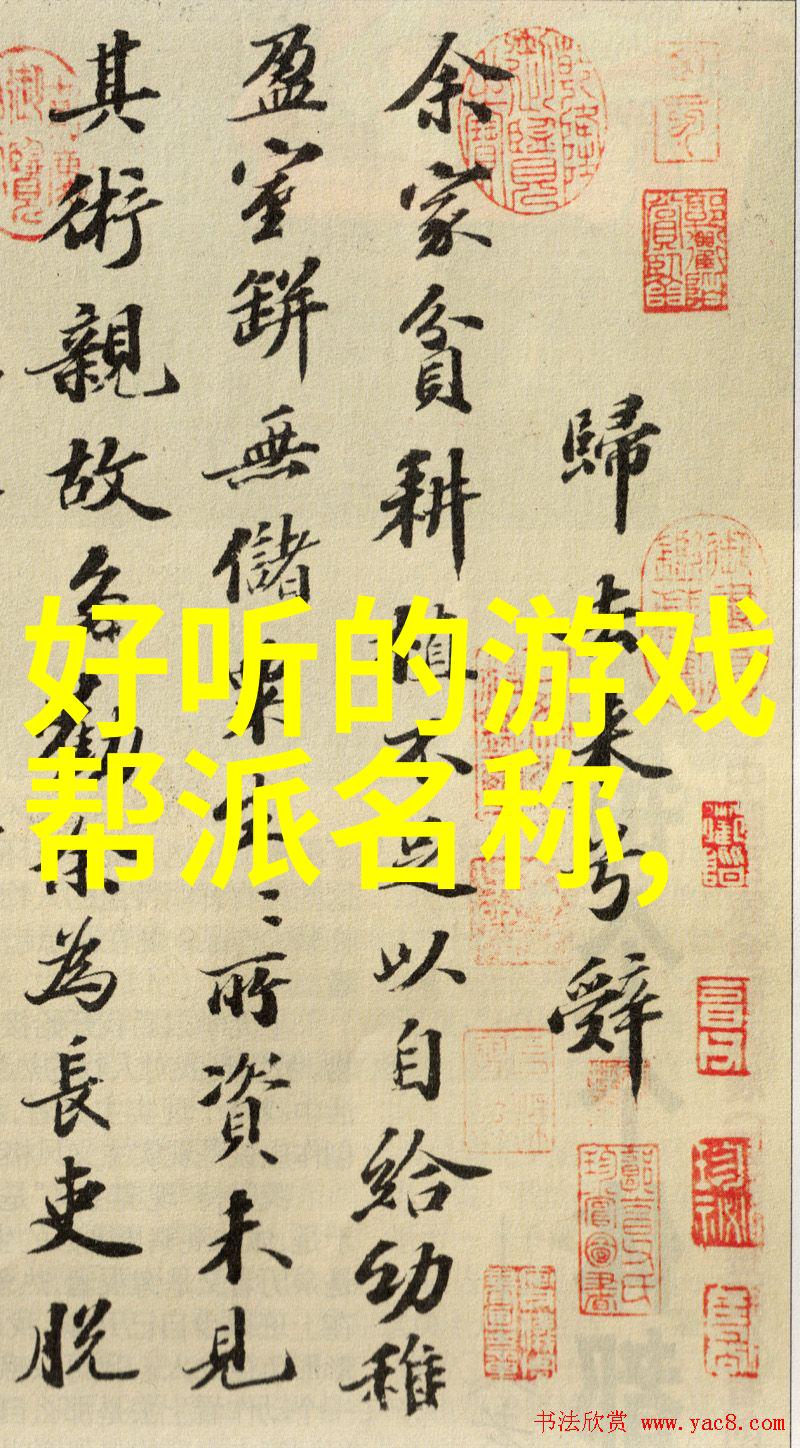 歸去来兮辭
余家貧耕植不足以自給幼稚
盈室缾無儲粟生〻所資未見
其術親故多勸余為長吏脱
好听的游戏
帮派名称,
书法欣赏 www.yac8.com